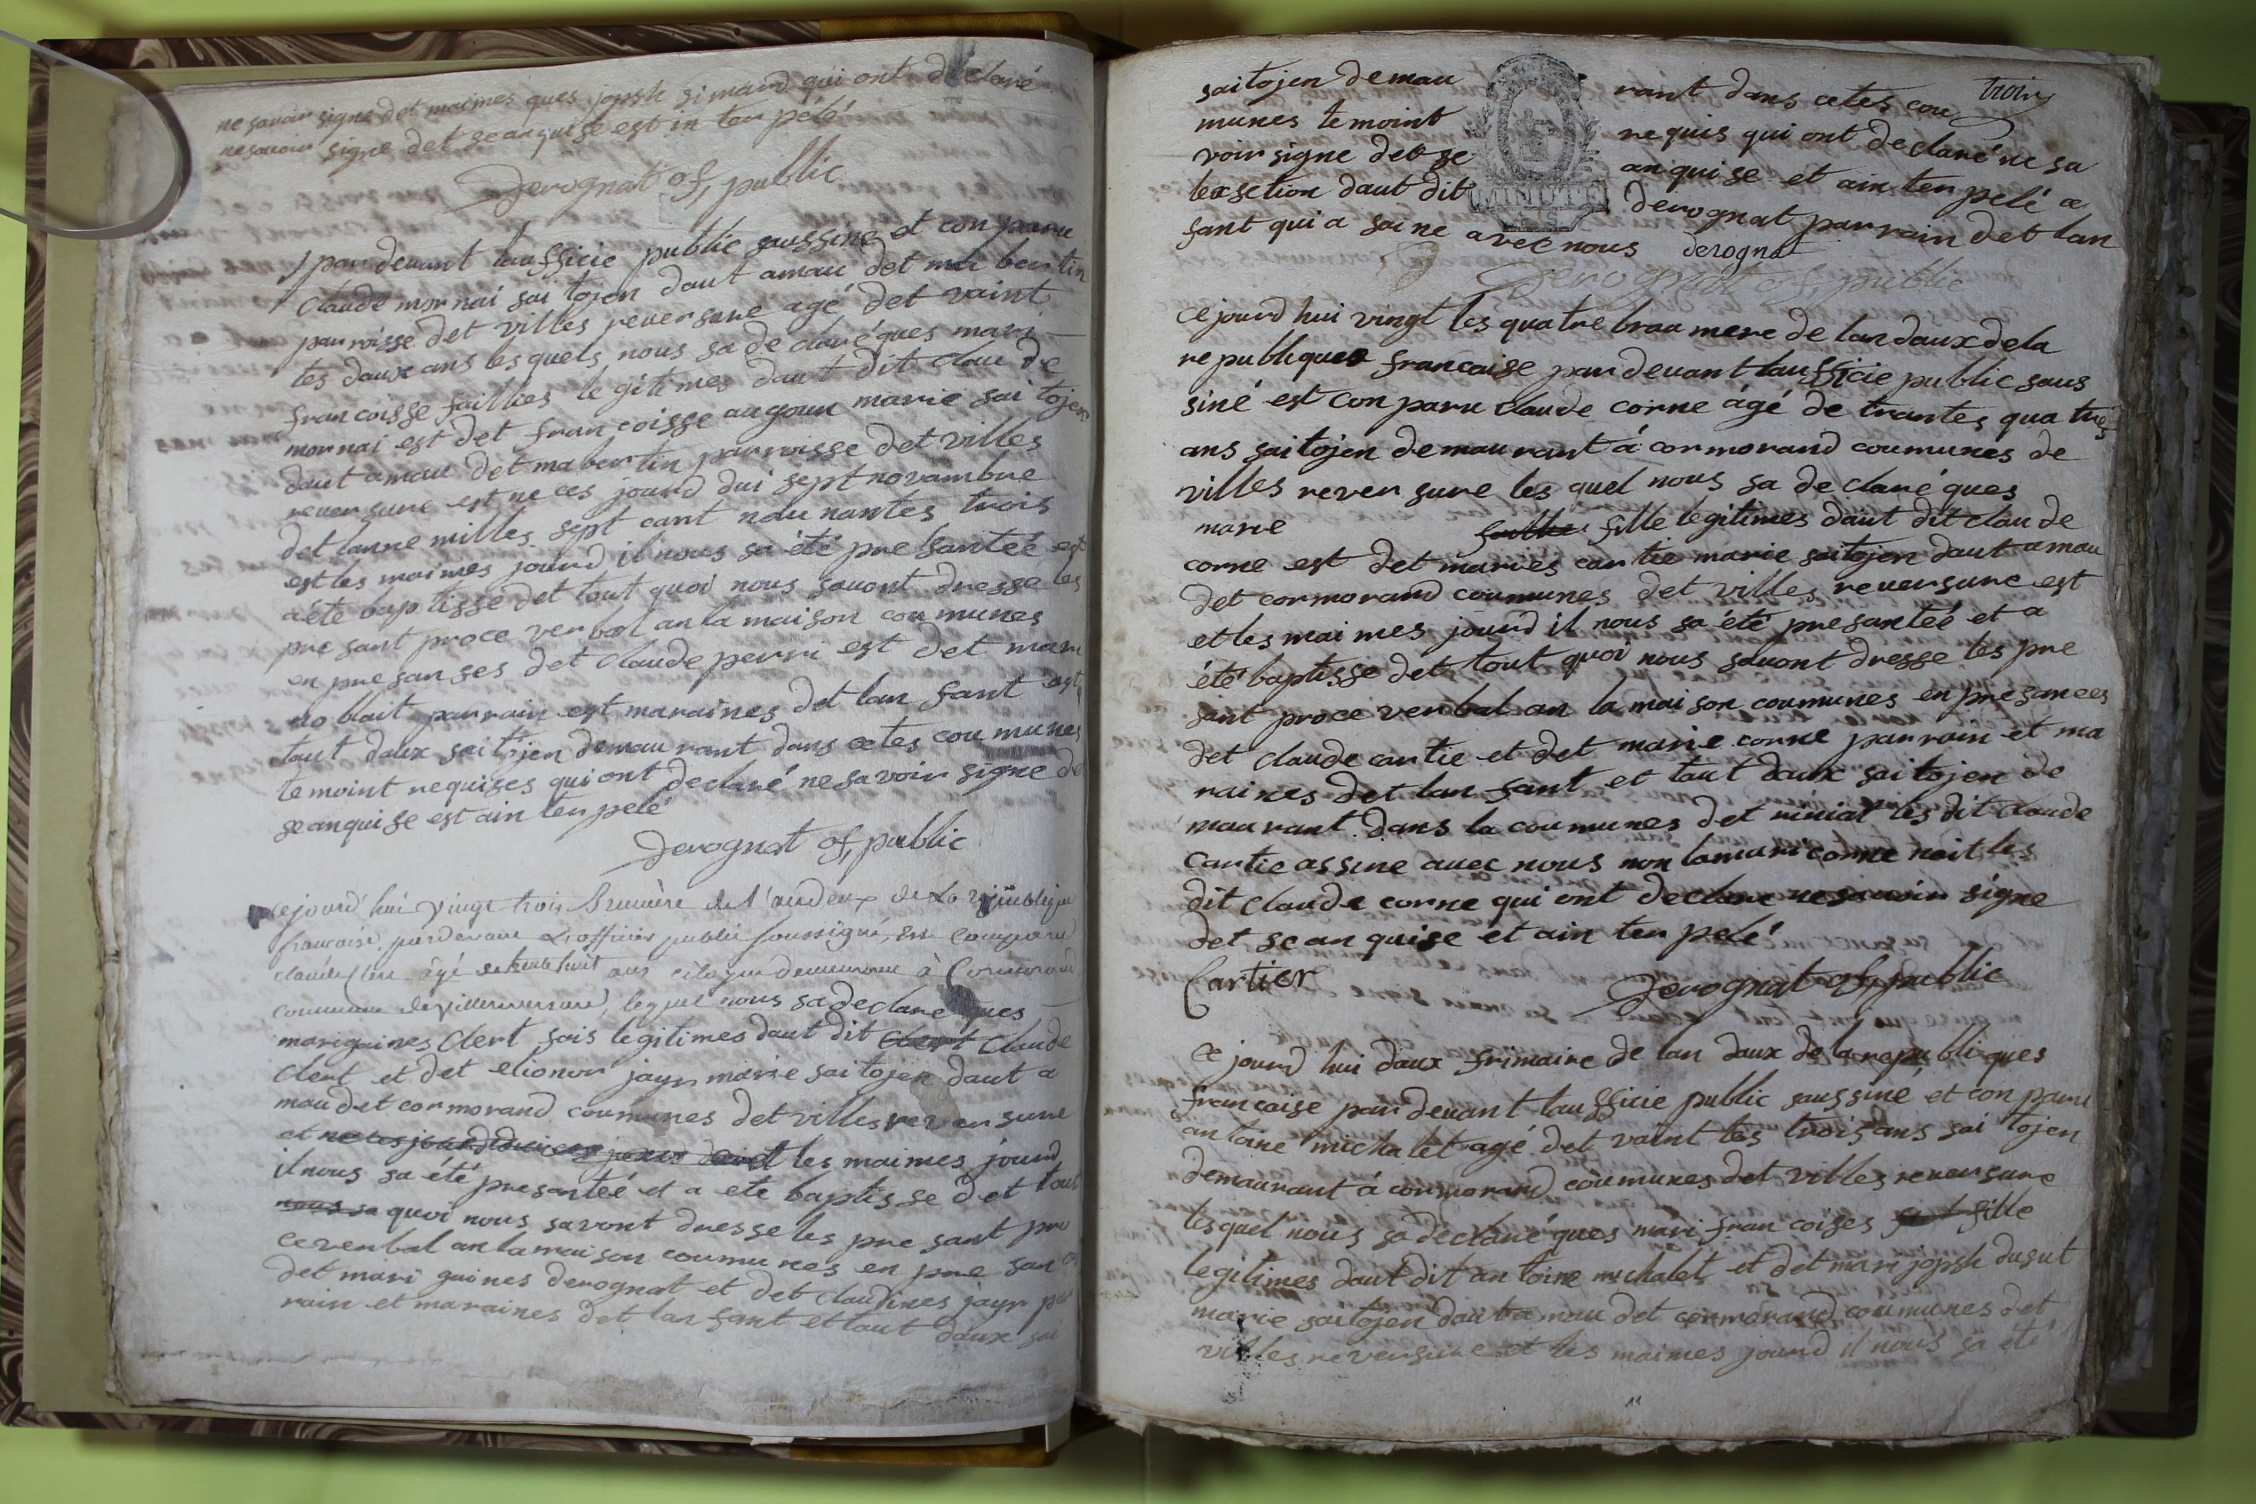 ne savoir signe det maimes ques jopsh simand qui ont déclaré
ne savoir signe det seanquise est in ter pélé
Derognat of, public
pardevant laufficie public saussine et conparu
Claude mornai sai tojen daut amau det ma bertin
parroisse det villes reversure agé det vaint
tes daux ans lesquels nous sa de claré ques mari
francoisse faillies légitimes daut dit claude
mornai est det francoisse augour marie sai tojen
daut amau det mabertin parroisse det villes
reversure est ne ces jourd dui sept novambre
det lanne milles sept cant nau nantes trois
est les maimes jourd il nous sa été presantée est
a été baptissé det tout quoi nous savont dresse les
pre sant proce verbal an la maison coumunes
en pre sanses det Claude perri est det mari
no blait parrain est maraines det lan fant est
taut daux sai tojen demaurant dans cetes coumunes
te moint requises qui ont declaré ne savoir signe de
seanquise est ain ter pelé
Derognat of, public
cejourd'hui vingt trois brumère de l'an deux de La république
francaise, pardevant L'officier public soussigné, est comparu
claude clert âgé de trente huit ans citoyen demeurant à Cormorand
commune de villereversure, lequel nous sa declare ques
mariguines Clert fois legitimes daut dit Clert Claude
Clert et det elionor jayr marie sai tojen daut a
mau det cormorand coumunes det villes reversure
et ne ces jourd dui ces jourd dui et les maimes jourd
il nous sa été presantée et a ete baptisse det tout
nous sa quoi nous savont dresse les pre sant pro
ce verbal an la mai son coumunes en pre san ce
det mari guines derognat et det claudines jayr par
rain et maraines det lan fant et taut daux sai
troix
saitojen demau rant dans cetes cou
munes temoint requis qui ont declaré ne sa
voir signe det se anquise et ain ter pelé a
lexsetion daut dit derognat parrain det lan
fant qui a saine avec nous derognat
MINUTE
Derognat of, public
ce jourd hui vingt les quatre brau mere de lan daux de la
republiques francaise pardevant lauffficie public saus
siné est con paru claude corne âgé de trantes quatres
ans saitojen demaurant à cormorand coumunes de
villes reversure les quel nous sa de claré ques
marie fille legitimes daut dit claude
corne est det maries cartie marie saitojen daut amau
det cormorand coumunes det villes reversure est
et les maimes jourd il nous sa été presantée et a
été baptisse det tout quoi nous savont dresse les pre
sant proce verbal an la maison coumunes en presances
det claude cartie et det marie corne parrain et ma
raines det lan fant et taut daux saitojen de
maurant dans la coumunes det les dit claude
cartie assine avec nous non lamari corne nait les
dit claude corne qui ont declare ne savoir signe
det, se anquise et ain ter pelé
Cartier
Derognat of, public
ce jourd hui daux frimaire de lan daux de la republiques
francaise pardevant laufficie public saussiné et con paru
antoine michalet agé det vaint tes trois ans sai tojen
demaurant à cormorand coumunes det villes reversure
lesquel nous sa declaré ques mari francoises fille
legitimes daut dit antoine michalet et det mari jopsh dusut
marie saitojen daut a mau det cormorand coumunes det
villes reversure et les maimes jourd il nous sa été